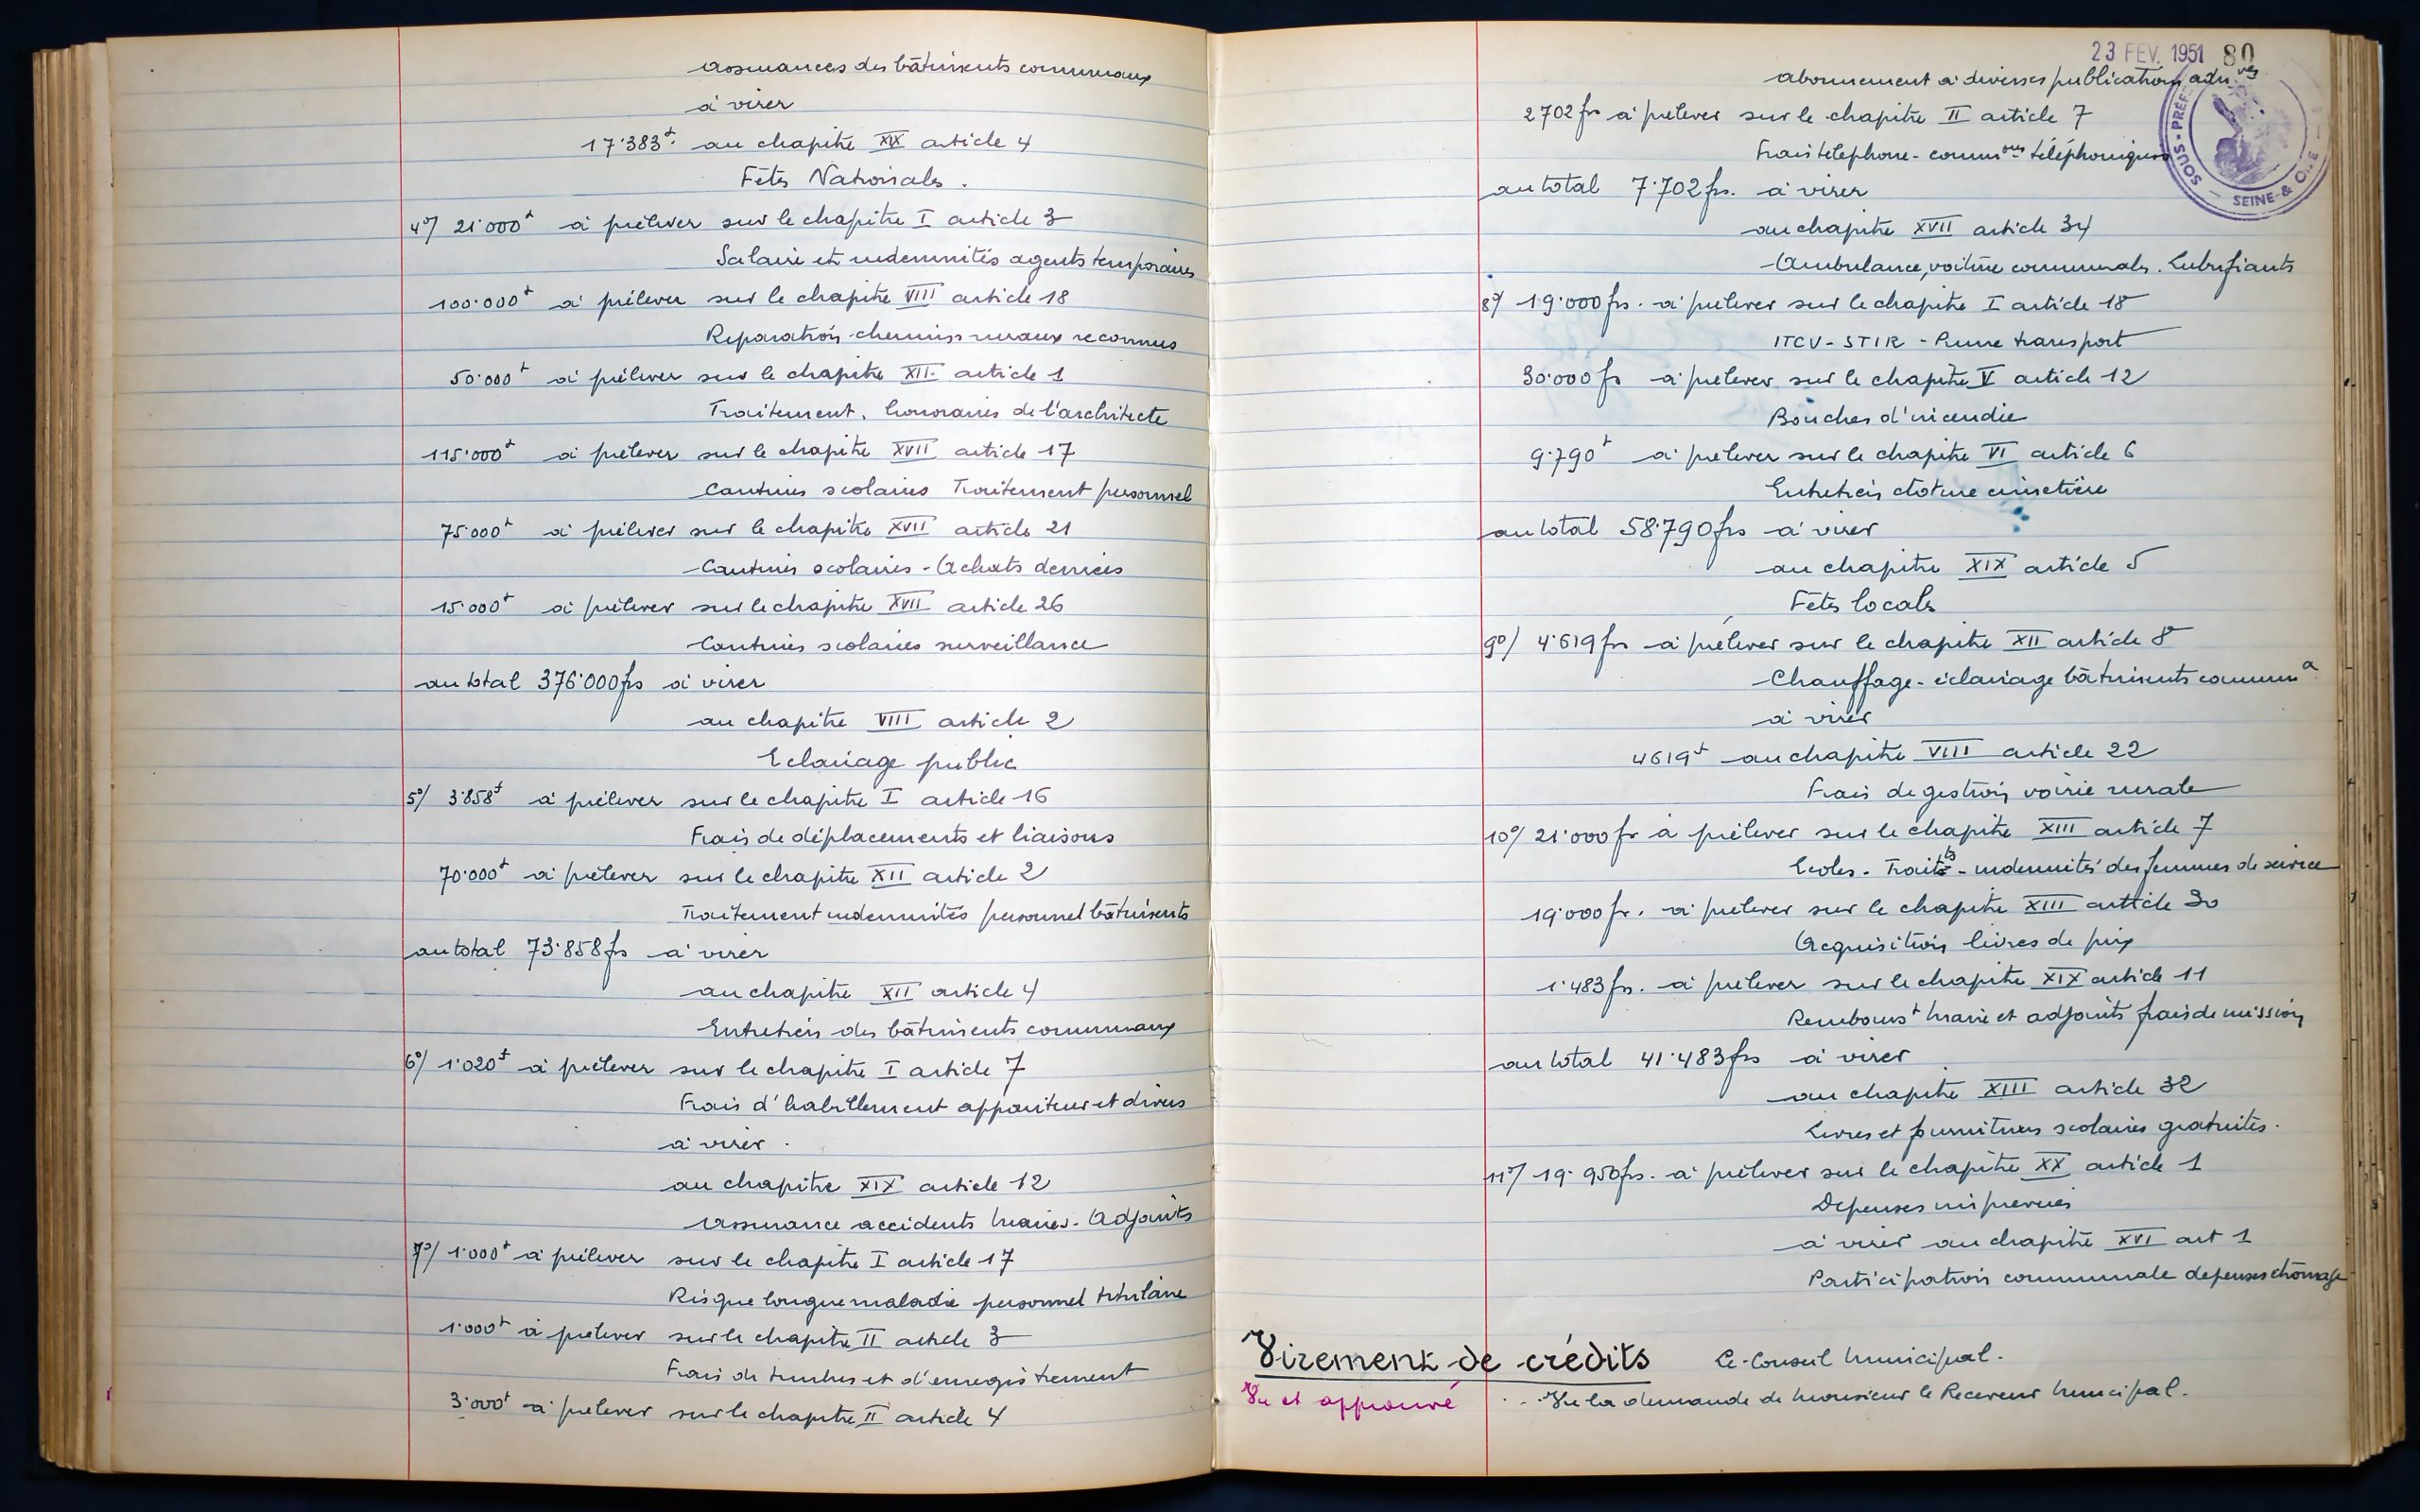 assurances des bâtiments communaux
à virer
17.383f. au chapitre XIX article 4
Fêtes Nationales.
4°/ 21.000f à prélever sur le chapitre I article 3
Salaire et indemnités agents temporaires
100.000f à prélever sur le chapitre VIII article 18
Reparation chemins ruraux reconnus
50.000f à prélever sur le chapitre XII article 1
Traitement, honoraires de l'architecte
115.000f à prélever sur le chapitre XVII article 17
Cantines scolaires Traitement personnel
75.000f à prélever sur le chapitre XVII article 21
Cantines scolaires - Achats denrées
15.000f à prélever sur le chapitre XVII article 26
Cantines scolaires surveillance
au total 376.000frs à virer
au chapitre VIII article 2
Eclairage public
5°/ 3.858f à prélever sur le chapitre I article 16
Frais de déplacements et liaisons
70.000f à prélever sur le chapitre XII article 2
Traitement indemnités personnel bâtiments
au total 73.858frs à virer
au chapitre XII article 4
Entretien des bâtiments communaux
6°/ 1.020f à prélever sur le chapitre I article 7
Frais d'habillement appariteur et divers
à virer.
au chapitre XIX article 12
assurance accidents maires - Adjoints
7°/ 1.000f à prélever sur le chapitre I article 17
Risque longue maladie personnel titulaire
1.000f à prélever sur le chapitre II article 3
Frais de timbres et d'enregistrement
3.000f à prélever sur le chapitre II article 4
23 FEV. 1951 80
abonnement à diverses publications adm.ves
SOUS-PRÉF
SEINE-&-OISE
2702frs à prélever sur le chapitre II article 7
Frais telephone - commons téléphoniques
au total 7.702frs. à virer
au chapitre XVII article 34
Ambulance, voiture communale. Lubrifiants
8°/ 19.000frs. à prélever sur le chapitre I article 18
ITCV - STIR - Prime transport
30.000fs à prélever sur le chapitre V article 12
Bouches d'incendie
9.790f à prélever sur le chapitre VI article 6
Entretien cloture cimetière
au total 58.790frs à virer
au chapitre XIX article 5
Fêtes locales
9°/ 4.619frs à prélever sur le chapitre XII article 8
Chauffage - éclairage bâtiments commun x
à virer
4619f au chapitre VIII article 22
Frais de gestion voirie rurale
10°/ 21.000fr à prélever sur le chapitre XIII article 7
Ecoles - Traits - indemnités des femmes de service
19.000fr. à prélever sur le chapitre XIII article 30
Acquisition livres de prix
1.483frs. à prélever sur le chapitre XIX article 11
Rembourst maire et adjoints frais de mission
au total 41.483frs à virer
au chapitre XIII article 32
Livres et fournitures scolaires gratuites.
11°/ 19.950frs. à prélever sur le chapitre XX article 1
Depenses imprevues
à virer au chapitre XVI art 1
Participation communale depenses chômage
Virement de crédits Le Conseil Municipal.
Vu et approuvé Vu la demande de Monsieur le Receveur Municipal.